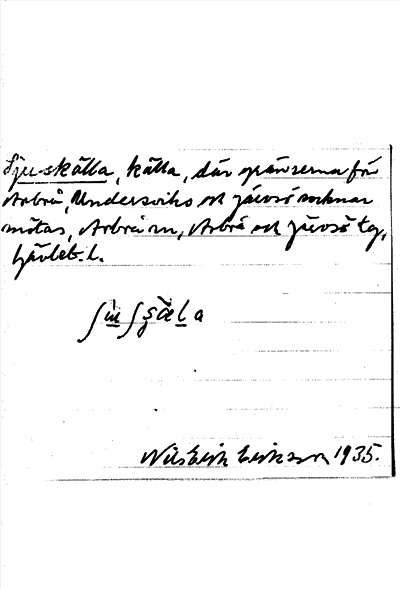 Sjuskälla, källa, där gränserna för
Arbrå, Undersviks och Järvsö socknar
mötas, Arbrå sn, Arbrå och Järvsö tg,
Gävleb. l.
Nils Erik Eriksson 1935.